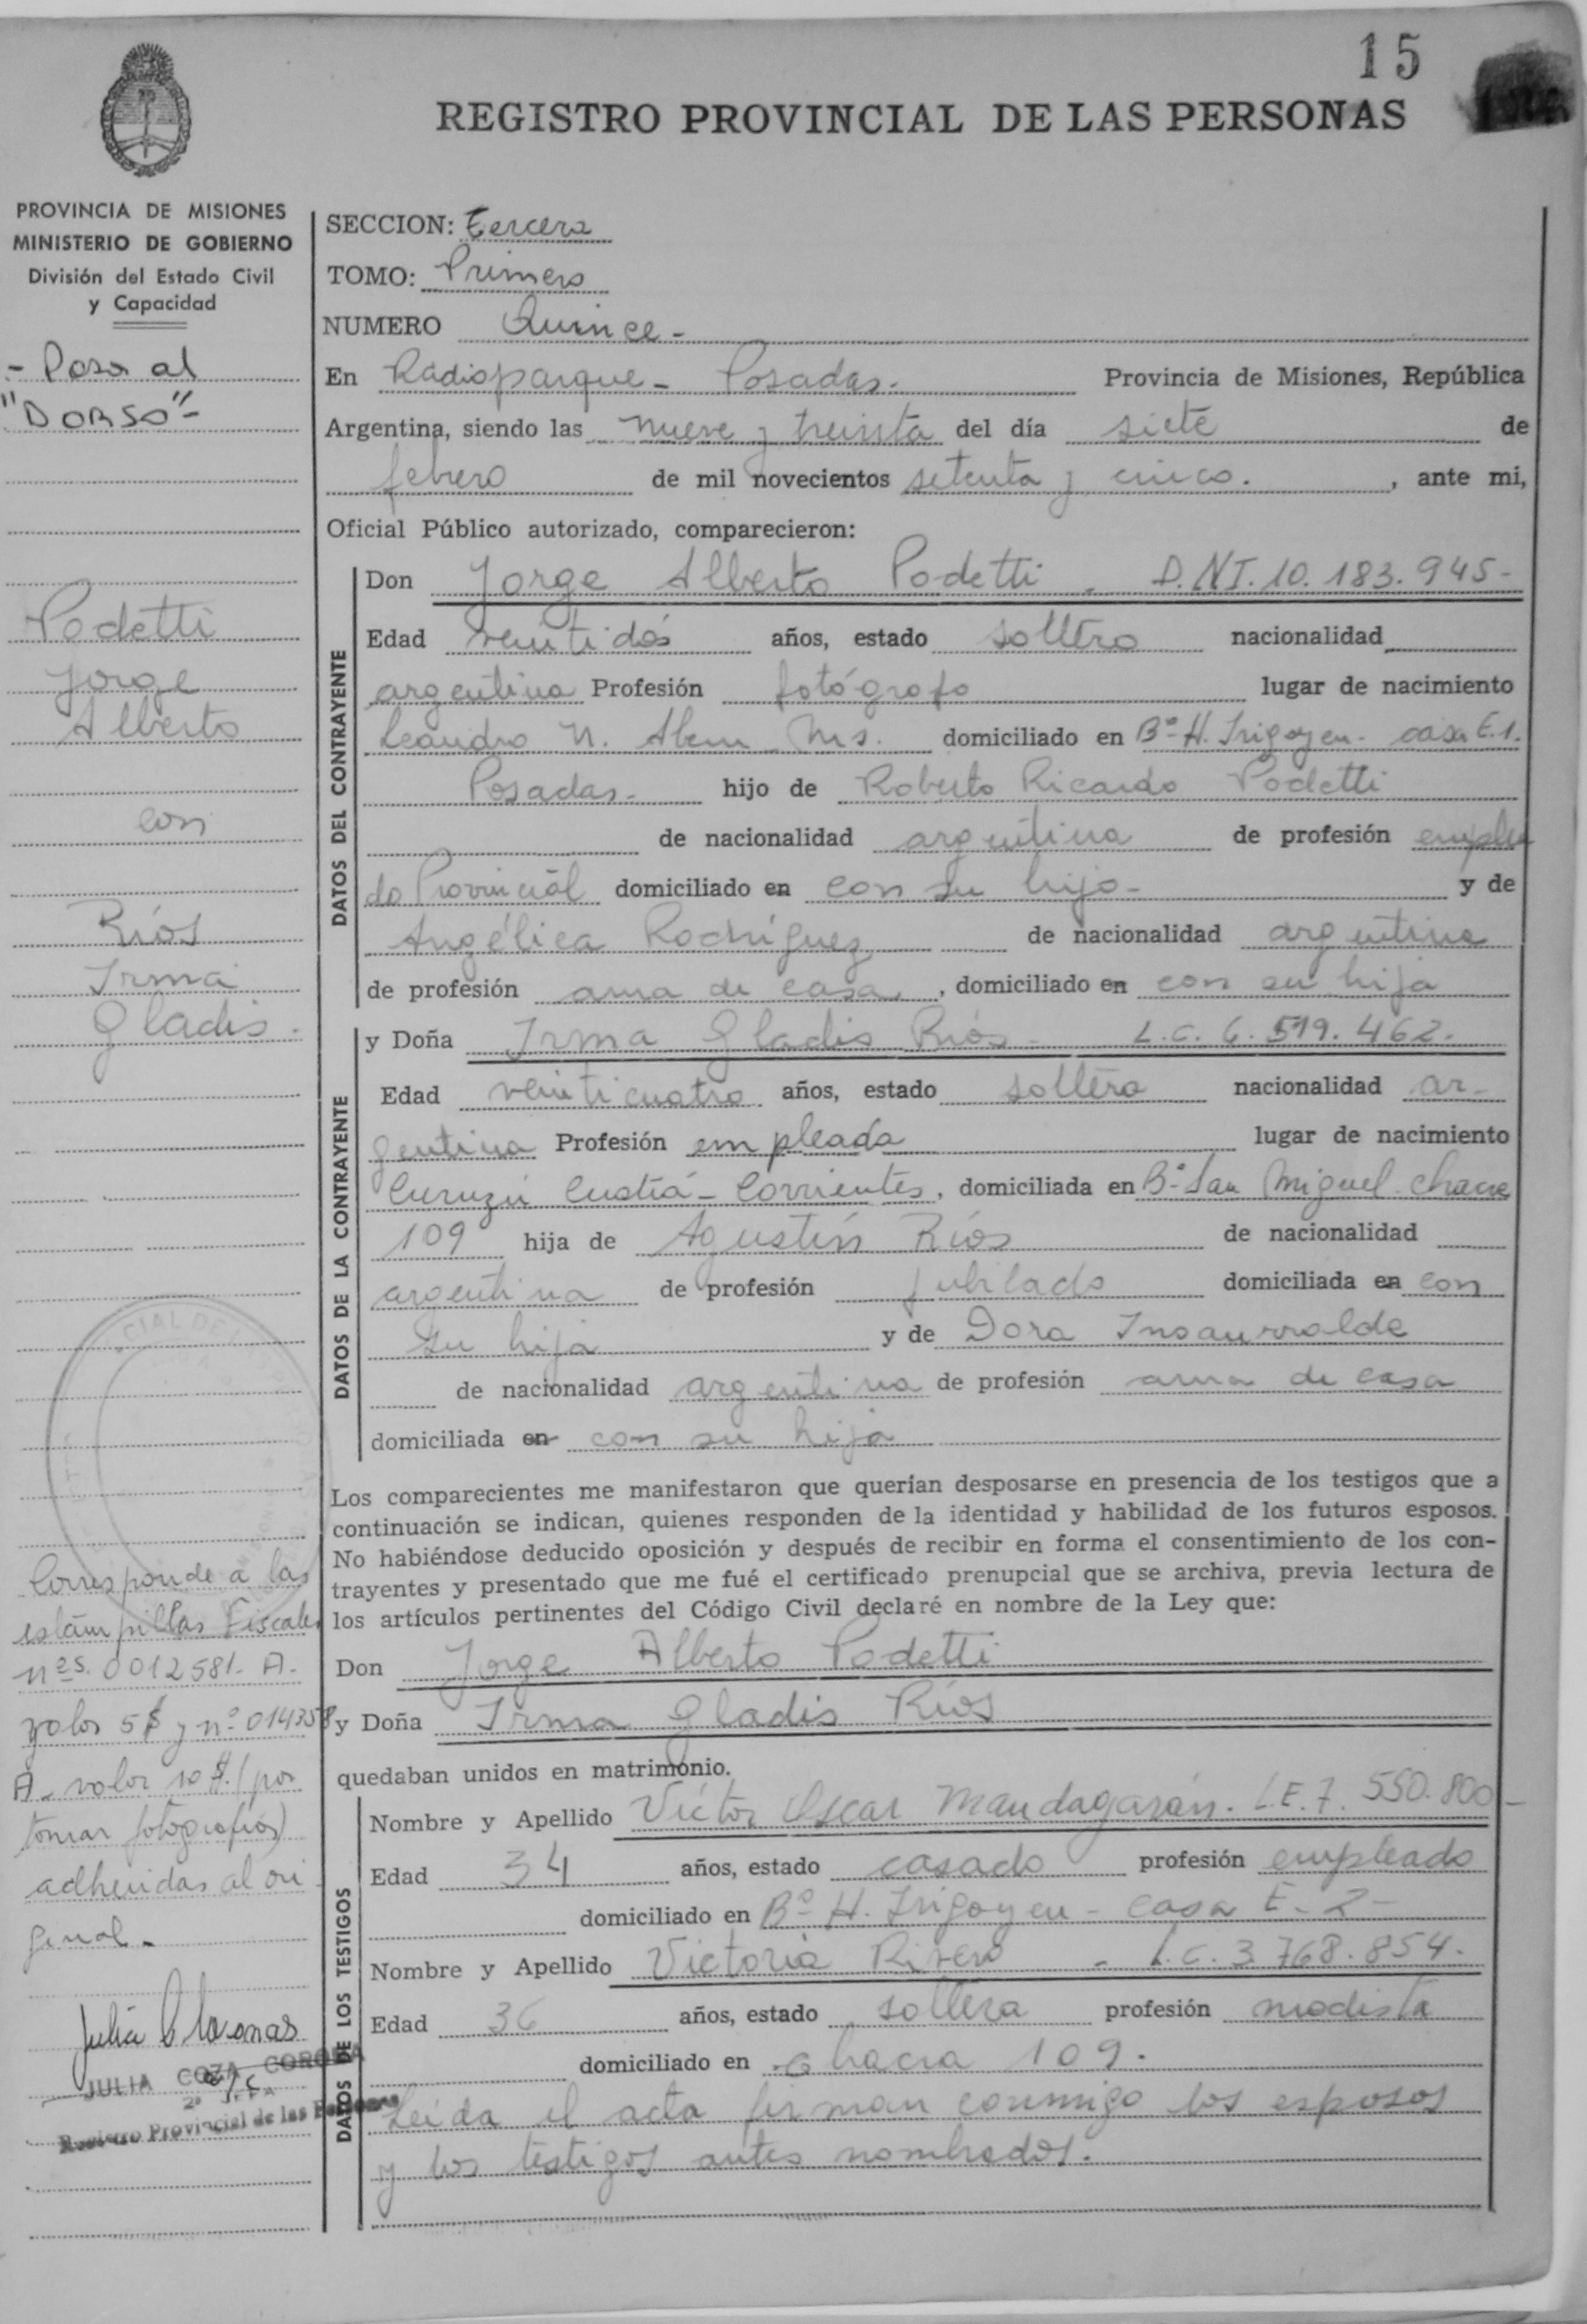 15
REGISTRO PROVINCIAL DE LAS PERSONAS
PROVINCIA DE MISIONES
MINISTERIO DE GOBIERNO
División del Estado Civil
y Capacidad
- Pasa al
"DORSO"-
Podetti
Jorge
Alberto
con
Ríos
Irma
Gladis.
Corresponde a las
estampillas Fiscales
nºs. 0012581- A-
valor 5$ y nº 014358
A- valor 10 $. (por
tomar fotografías)
adheridas al ori
ginal.
JULIA COZA CORONA
2º JEFA
Registro Provincial de las Personas
SECCION: Tercera
TOMO: Primero
NUMERO Quince-
En Radioparque- Posadas- Provincia de Misiones, República
Argentina, siendo las nueve y treinta del día siete de
febrero de mil novecientos setenta y cinco. , ante mi,
Oficial Público autorizado, comparecieron:
DATOS DEL CONTRAYENTE
Don Jorge Alberto Podetti - D.N.I. 10.183.945-
Edad veintidós años, estado soltero nacionalidad
argentina Profesión fotógrafo lugar de nacimiento
Leandro N. Alem - Ms. domiciliado en Bº H. Irigoyen- casa E.1.
Posadas- hijo de Roberto Ricardo Podetti
de nacionalidad argentina de profesión emplea
do Provincial domiciliado en con su hijo- y de
Angélica Rodríguez de nacionalidad argentina
de profesión ama de casa , domiciliado en con su hija
DATOS DE LA CONTRAYENTE
y Doña Irma Gladis Ríos - L.C. 6.519.462.
Edad veinticuatro años, estado soltera nacionalidad ar-
gentina Profesión empleada lugar de nacimiento
Curuzú Cuatiá- Corrientes, domiciliada en Bº San Miguel- chacra
109 hija de Agustín Ríos de nacionalidad
argentina de profesión jubilado domiciliada en con
su hija y de Dora Insaurralde
de nacionalidad argentina de profesión ama de casa
domiciliada en con su hija
Los comparecientes me manifestaron que querían desposarse en presencia de los testigos que a
continuación se indican, quienes responden de la identidad y habilidad de los futuros esposos.
No habiéndose deducido oposición y después de recibir en forma el consentimiento de los con-
trayentes y presentado que me fué el certificado prenupcial que se archiva, previa lectura de
los artículos pertinentes del Código Civil declaré en nombre de la Ley que:
Don Jorge Alberto Podetti
y Doña Irma Gladis Ríos
quedaban unidos en matrimonio.
DATOS DE LOS TESTIGOS
Nombre y Apellido Víctor Oscar Mandagarán. L.E. 7. 550.800-
Edad 34 años, estado casado profesión empleado
domiciliado en Bº H. Irigoyen - casa E-2-
Nombre y Apellido Victoria Rivero - L.C. 3.768.854.
Edad 36 años, estado soltera profesión modista
domiciliado en chacra 109.
Leída el acta firman conmigo los esposos
y los testigos antes nombrados.